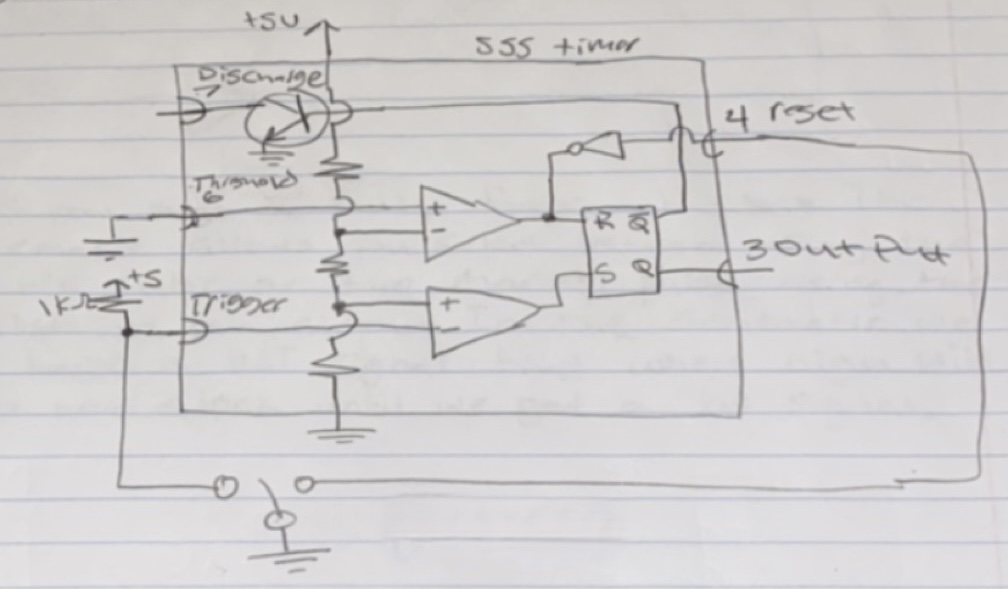 +5V
555 timer
Discharge
7
4 reset
Threshold
6
+
-
R Q̅
S Q
3 Output
+5
1KΩ
Trigger
+
-